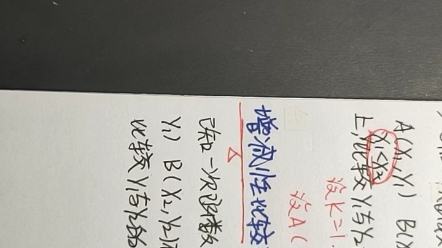 A(x₁,y₁) B(x
上,x₁<x₂ 比较 y₁与y₂
设k=1
设A(
增减性比较
已知一次函数
y₁) B(x₂,y₂)
比较 y₁与y₂